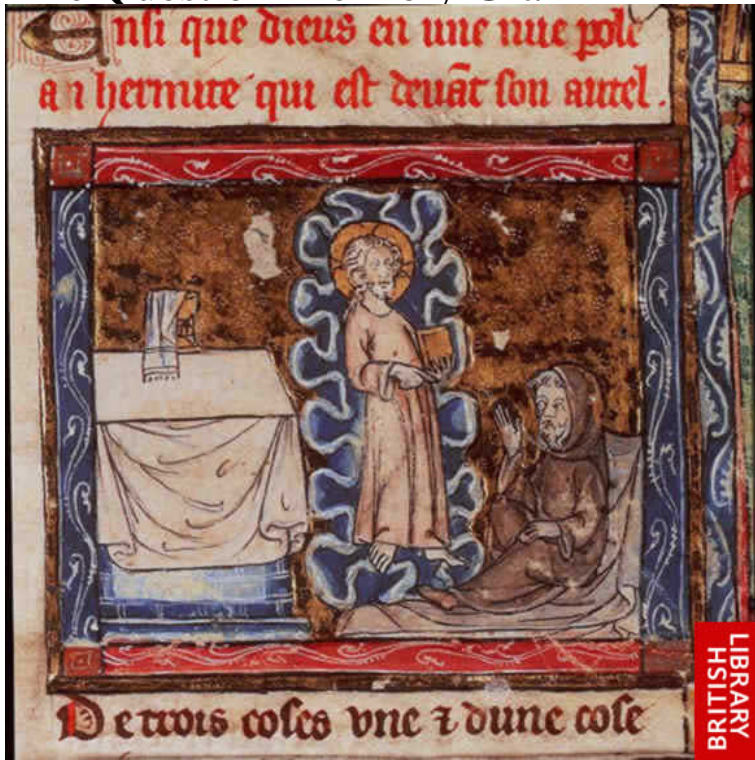 Ensi que dieus en une nue pole
a .i. hermite qui est devãt son autel.
De trois coses vne ⁊ dune cose
BRITISH
LIBRARY